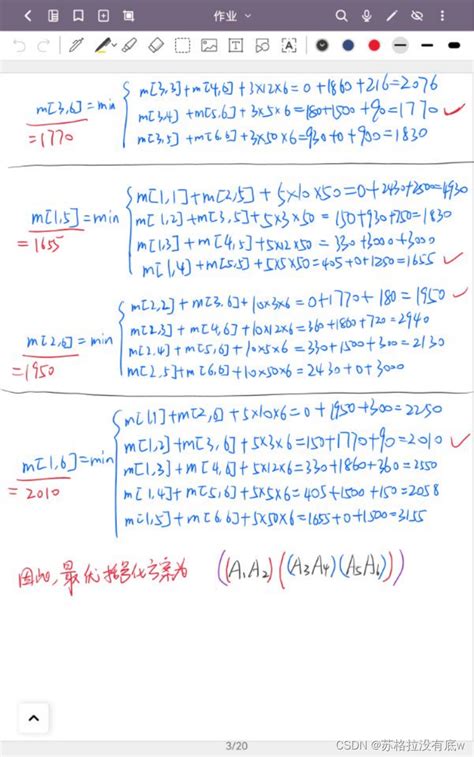 作业
m[3,6]=min
=1770
m[3,3]+m[4,6]+3×12×6=0+1860+216=2076
m[3,4]+m[5,6]+3×5×6=180+1500+90=1770 ✓
m[3,5]+m[6,6]+3×50×6=930+0+900=1830
m[1,5]=min
=1655
m[1,1]+m[2,5]+5×10×50=0+2430+2500=4930
m[1,2]+m[3,5]+5×3×50=150+930+750=1830
m[1,3]+m[4,5]+5×12×50=330+3000+3000
m[1,4]+m[5,5]+5×5×50=405+0+1250=1655 ✓
m[2,6]=min
=1950
m[2,2]+m[3,6]+10×3×6=0+1770+180=1950 ✓
m[2,3]+m[4,6]+10×12×6=360+1860+720=2940
m[2,4]+m[5,6]+10×5×6=330+1500+300=2130
m[2,5]+m[6,6]+10×50×6=2430+0+3000
m[1,6]=min
=2010
m[1,1]+m[2,6]+5×10×6=0+1950+300=2250
m[1,2]+m[3,6]+5×3×6=150+1770+90=2010 ✓
m[1,3]+m[4,6]+5×12×6=330+1860+360=2550
m[1,4]+m[5,6]+5×5×6=405+1500+150=2058
m[1,5]+m[6,6]+5×50×6=1655+0+1500=3155
因此,最优括号化方案为 ((A₁A₂)((A₃A₄)(A₅A₆)))
3/20
CSDN @苏格拉没有底w